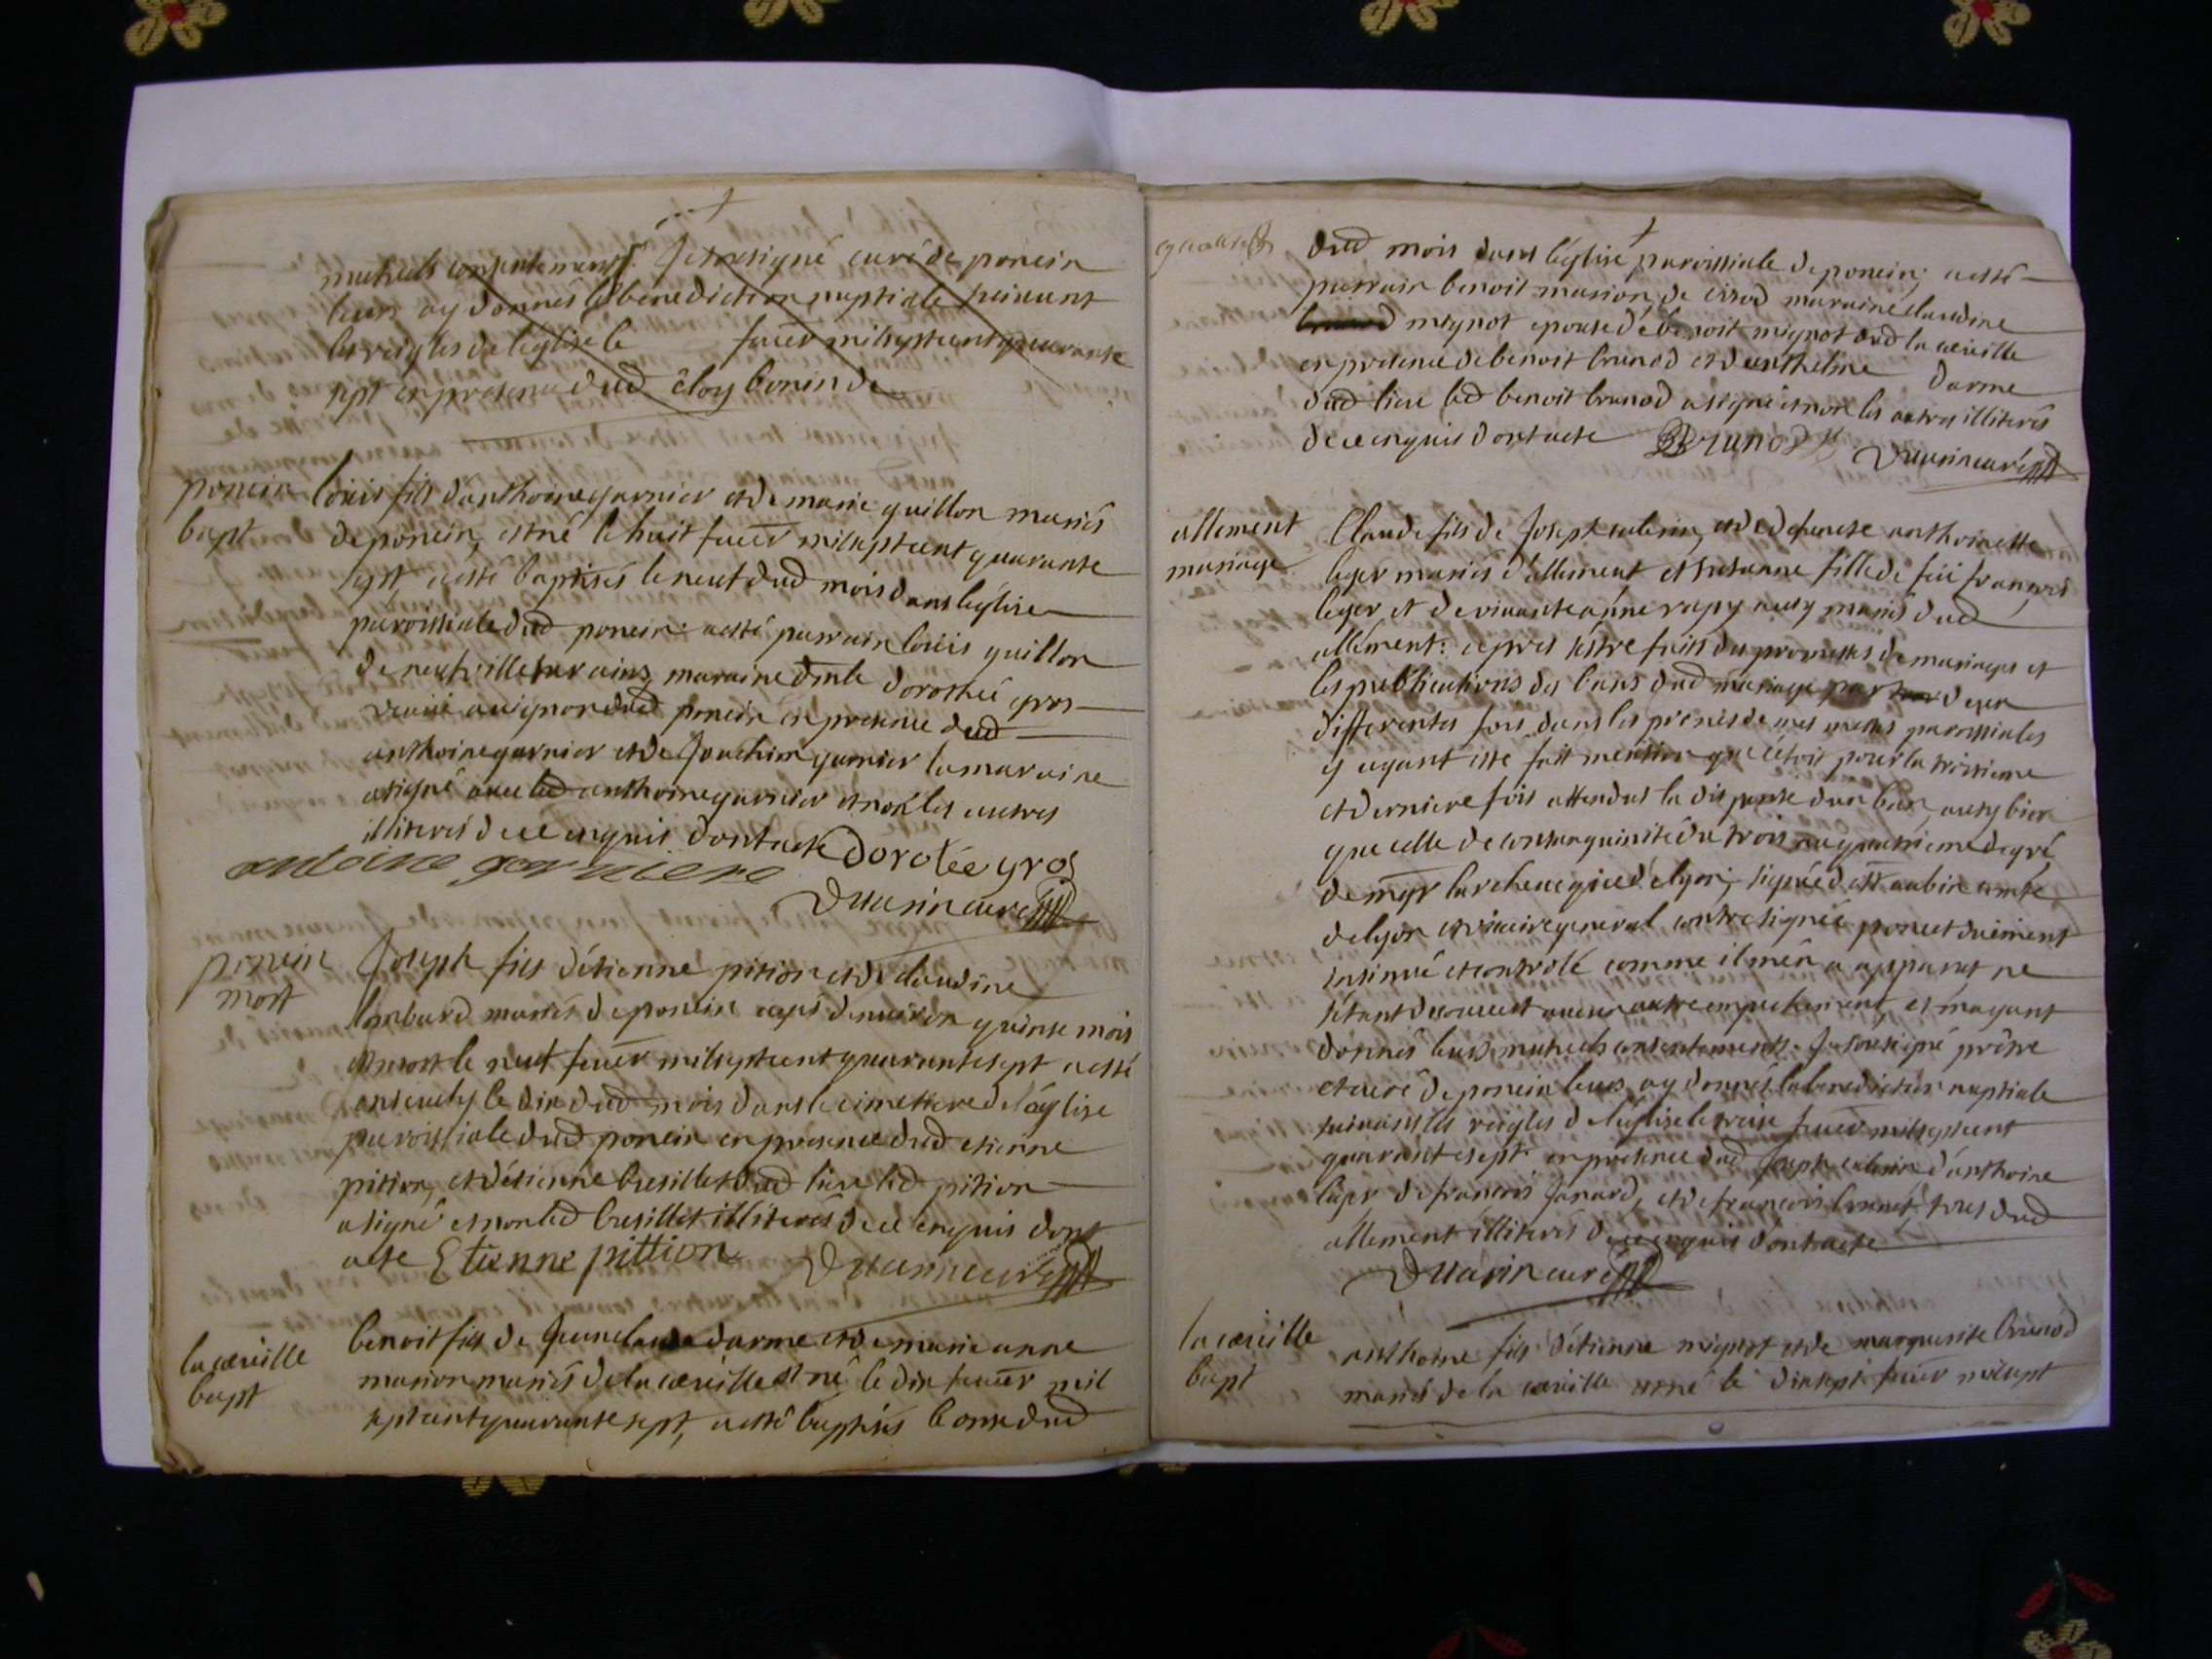 mutuels consentements Je soussigné curé de poncin
leurs ay donnés la bénédiction nuptiale suivant
les reigles de léglise le feuer mil sept cent quarante
sept en presence dud éloy bonin de
poncin
bapt
loüis fils d'anthoine garnier et de marie guillon mariés
de poncin, est né le huit feuer mil sept cent quarante
sept, a esté baptisés le neuf dud mois dans léglise
paroissiale dud poncin: a esté parrain loüis guillon
de neufville sur ains, maraine dmle dorothée gros
veuve auignon dud poncin en presence dud
anthoine garnier et de Joachim garnier la maraine
a signé avec led anthoine garnier et non les autres
illiterés de ce enquis dont acte Dorotée gros
antoine garniere
Duarin curé
poncin
mort
Joseph fils d'étienne pition et de claudine
lombard mariés de poncin agés denuiron quinse mois
est mort le neuf feuer mil sept cent quarante sept a esté
ansevely le dix dud mois dans le cimettiere de l'églize
paroissiale dud poncin en presence dud etienne
pition, et d'étienne bresillet dud lieu led pition
a signé et non led bresillet illiterés de ce enquis dont
acte Etienne pittion Duarin curé
la cueille
bapt
benoit fils de Jeanclaude darme et de marie anne
marion mariés de la cueille est né le dix feuer mil
sept cent quarante sept, a esté baptisés le onse dud
dud mois dans léglise paroissiale de poncin; a esté
parrain benoit marion, de maraine claudine
mignot epouse dé benoit mignot dud la cueille
en presence de benoit brunod et d'anthelme darme
dud lieu led benoit brunod a signé et non les autres illiterés
de ce enquis dont acte BBrunod Duarin curé
allement
mariage
Claude fils de Joseph et de defuncte anthoinette
leger mariés d'allement et susanne fille de feü françois
leger et de vivante anne rapy aussy mariés dud
allement: apres sestre faits des promesses de mariages et
les publications des bans dud mariage par deux
differentes fois dans les prones de mes messes paroissiales
y ayant este fait mention que cétoit pour la troisieme
et derniere fois attendus la dispense d'un ban, aussy bien
que celle de consanguinité du trois au quatrieme degré
de mgr larcheveque de lyon; signée d'st aubin comte
de lyon et vicaire general contresignée poncet duëment
insinué et controlé comme il m'en a apparut ne
s'étant decouvert aucun autre empechement, et m'ayant
donnés leurs mutuels consentements. Je soussigné prêtre
et curé de poncin leurs ay donnés la benediction nuptiale
suivant les reigles de léglise le treise feuer mil sept cent
quarante sept. en presence dud Joseph d'anthoine
leger de francois Janard, et de francois tous dud
allement illiterés de ce enquis dont acte
Duarin curé
la cueille
bapt
anthoine fils d'étienne mignot et de marguerite brunod
mariés de la cueille est né le dix sept feuer mil sept